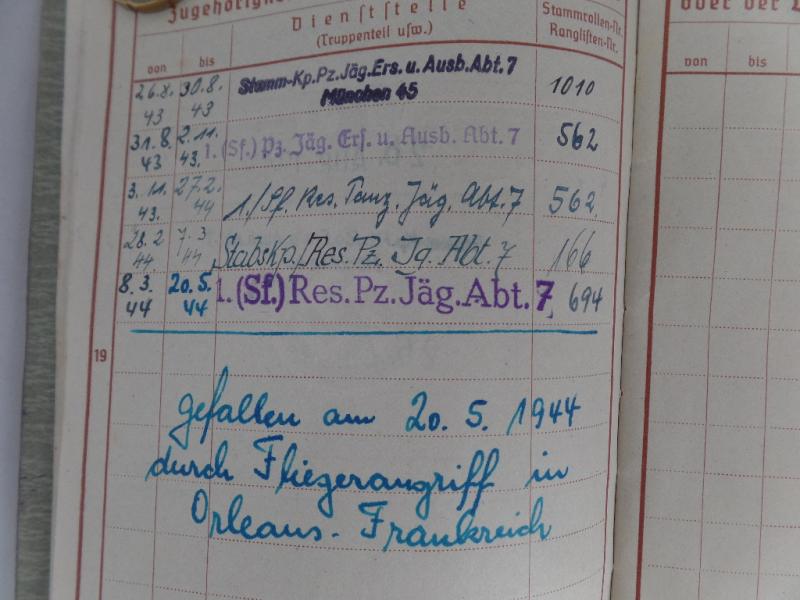 Zugehörigkei
Dienststelle
(Truppenteil usw.)
Stammrollen-Nr.
Ranglisten-Nr.
von bis
26.8. 30.8. Stamm-Kp.Pz.Jäg.Ers.u.Ausb.Abt.7 1010
43 43 München 45
31.8. 2.11. 1.(Sf.) Pz. Jäg. Ers. u. Ausb. Abt. 7 562
43 43.
3.11. 27.2. 1./Sf. Res. Panz. Jäg. Abt. 7 562
43. 44
28.2 7.3 StabsKp./Res. Pz. Jg. Abt. 7 166
44 44
8.3. 20.5. 1.(Sf.) Res. Pz. Jäg. Abt. 7 694
44 44
19
gefallen am 20. 5. 1944
durch Fliegerangriff in
Orleans - Frankreich
oder der
von bis